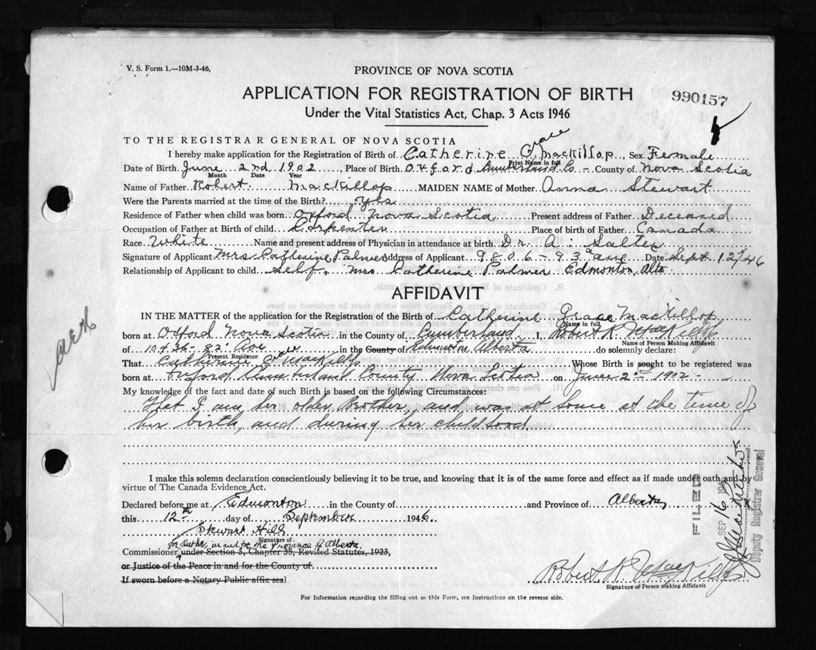 V. S. Form 1.—10M-3-46.
PROVINCE OF NOVA SCOTIA
APPLICATION FOR REGISTRATION OF BIRTH
990157
Under the Vital Statistics Act, Chap. 3 Acts 1946
TO THE REGISTRAR GENERAL OF NOVA SCOTIA
I hereby make application for the Registration of Birth of Catherine Grace MacKillop, Sex Female
Print Name in full
Date of Birth June 2nd 1902 Place of Birth Oxford Cumberland Co - County of Nova Scotia
Month Date Year
Name of Father Robert MacKillop MAIDEN NAME of Mother Anna Stewart
Were the Parents married at the time of Birth? yes
Residence of Father when child was born Oxford Nova Scotia Present address of Father Deceased
Occupation of Father at Birth of child Carpenter Place of birth of Father Canada
Race White Name and present address of Physician in attendance at birth Dr. A. Salter
Signature of Applicant Mrs Catherine Palmer Address of Applicant 9806 - 93 ave Date Sept 12/46
Relationship of Applicant to child Self. Mrs Catherine Palmer Edmonton, Alta
AFFIDAVIT
IN THE MATTER of the application for the Registration of the Birth of Catherine Grace MacKillop
Name in full
born at Oxford Nova Scotia in the County of Cumberland I, Robert R. MacKillop
Name of Person Making Affidavit
of 10436-82 Ave in the County of Edmonton Alberta do solemnly declare:
Present Residence
That Catherine Grace MacKillop Whose Birth is sought to be registered was
born at Oxford Cumberland County Nova Scotia on June 2nd 1902 -
My knowledge of the fact and date of such Birth is based on the following Circumstances:
That I am her older Brother, and was at home at the time of
her birth, and during her childhood
I make this solemn declaration conscientiously believing it to be true, and knowing that it is of the same force and effect as if made under oath and by
virtue of The Canada Evidence Act.
Declared before me at Edmonton in the County of and Province of Alberta
this 12th day of September 1946
Stewart Hill
Signature of
in and for the Province of Alberta
Commissioner under Section 5, Chapter 38, Revised Statutes, 1923,
or Justice of the Peace in and for the County of
If sworn before a Notary Public affix seal
Robert R. MacKillop
Signature of Person Making Affidavit
For Information regarding the filling out of this Form, see Instructions on the reverse side.
FILED
SEP 16
Deputy Registrar General